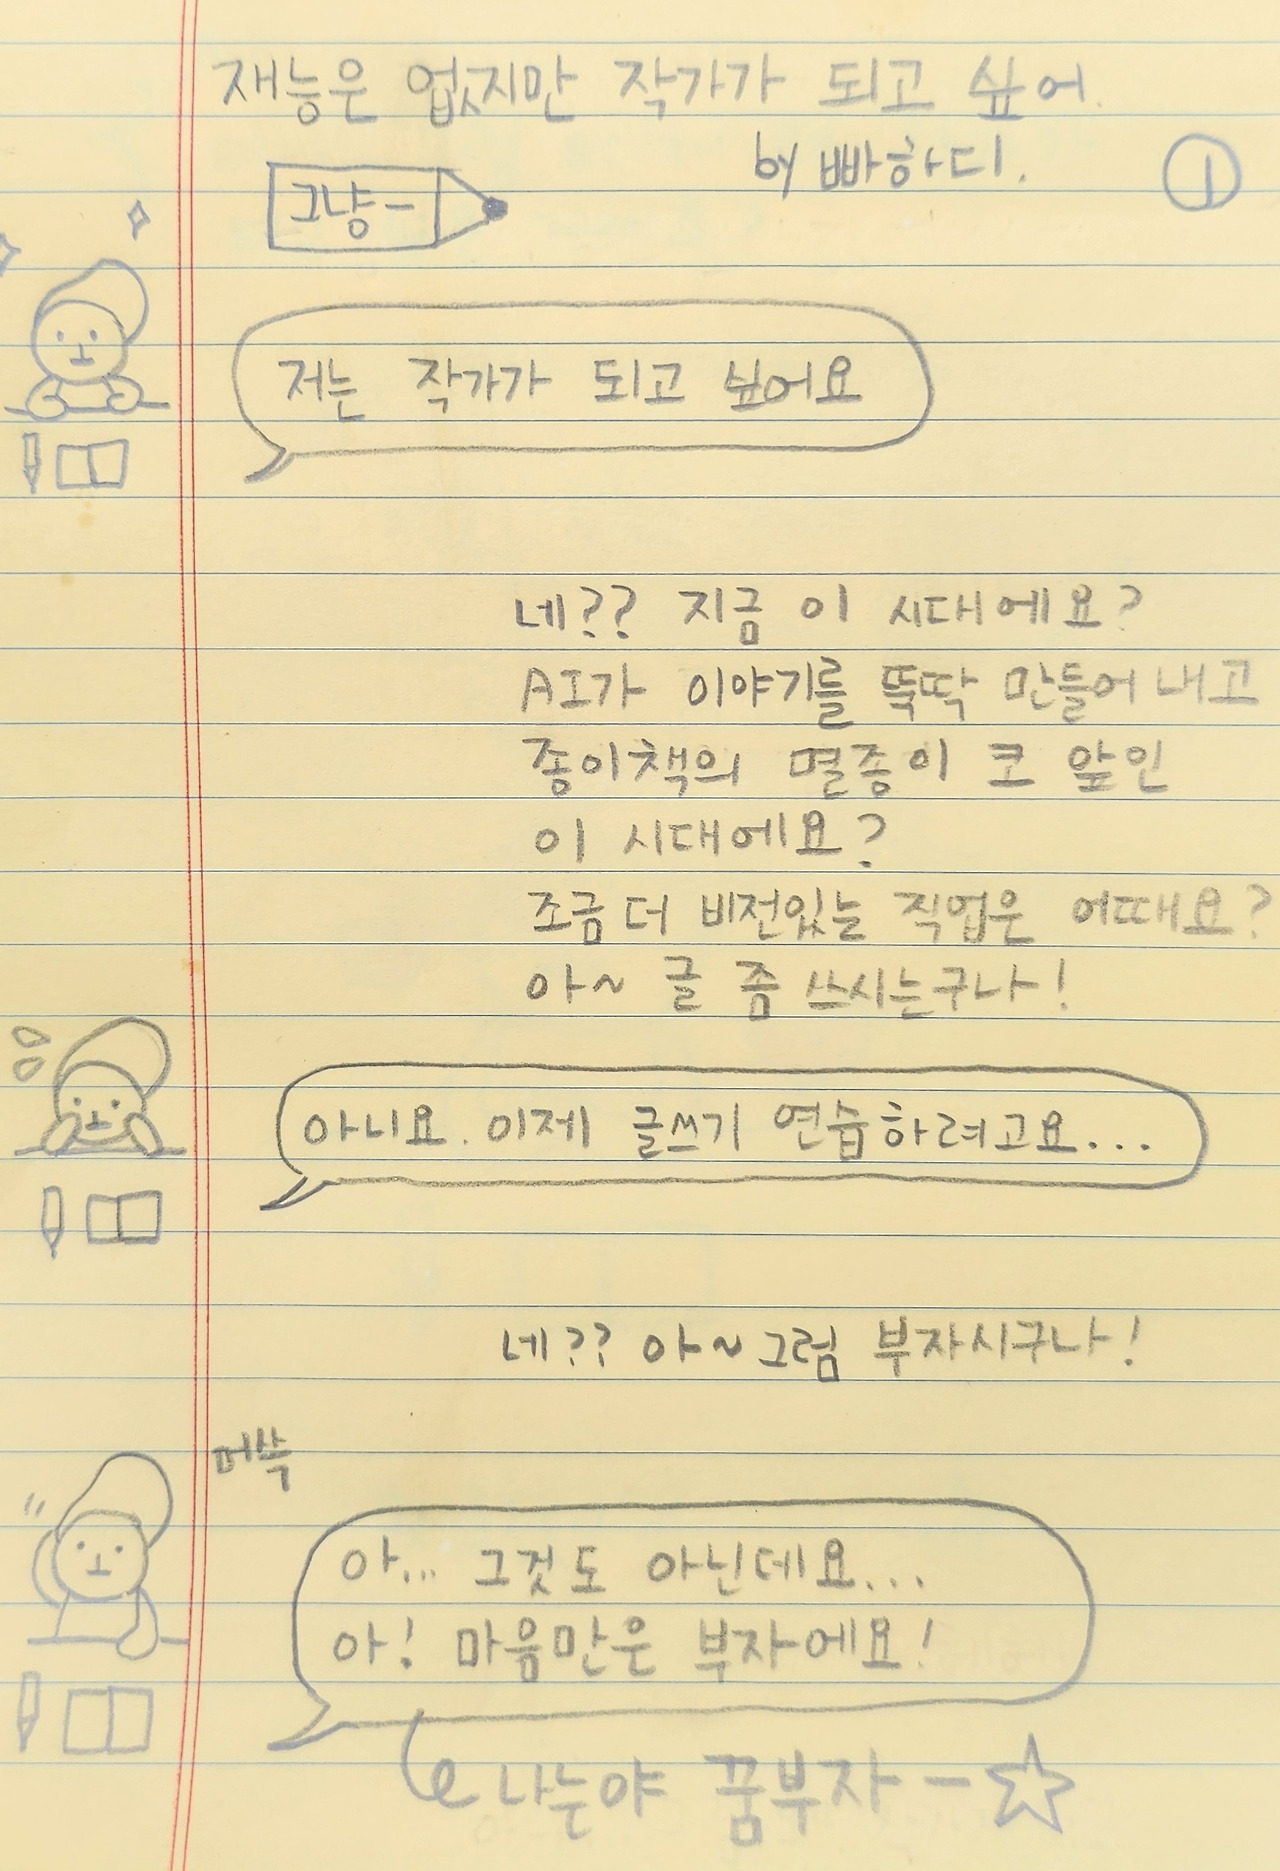 재능은 없지만 작가가 되고 싶어.
by 빠하디.
①
그냥-
저는 작가가 되고 싶어요
네?? 지금 이 시대에요?
AI가 이야기를 뚝딱 만들어 내고
종이책의 멸종이 코 앞인
이 시대에요?
조금 더 비전있는 직업은 어때요?
아~ 글 좀 쓰시는구나!
아니요. 이제 글쓰기 연습하려고요...
네?? 아~ 그럼 부자시구나!
머쓱
아... 그것도 아닌데요...
아! 마음만은 부자에요!
나는야 꿈부자-☆